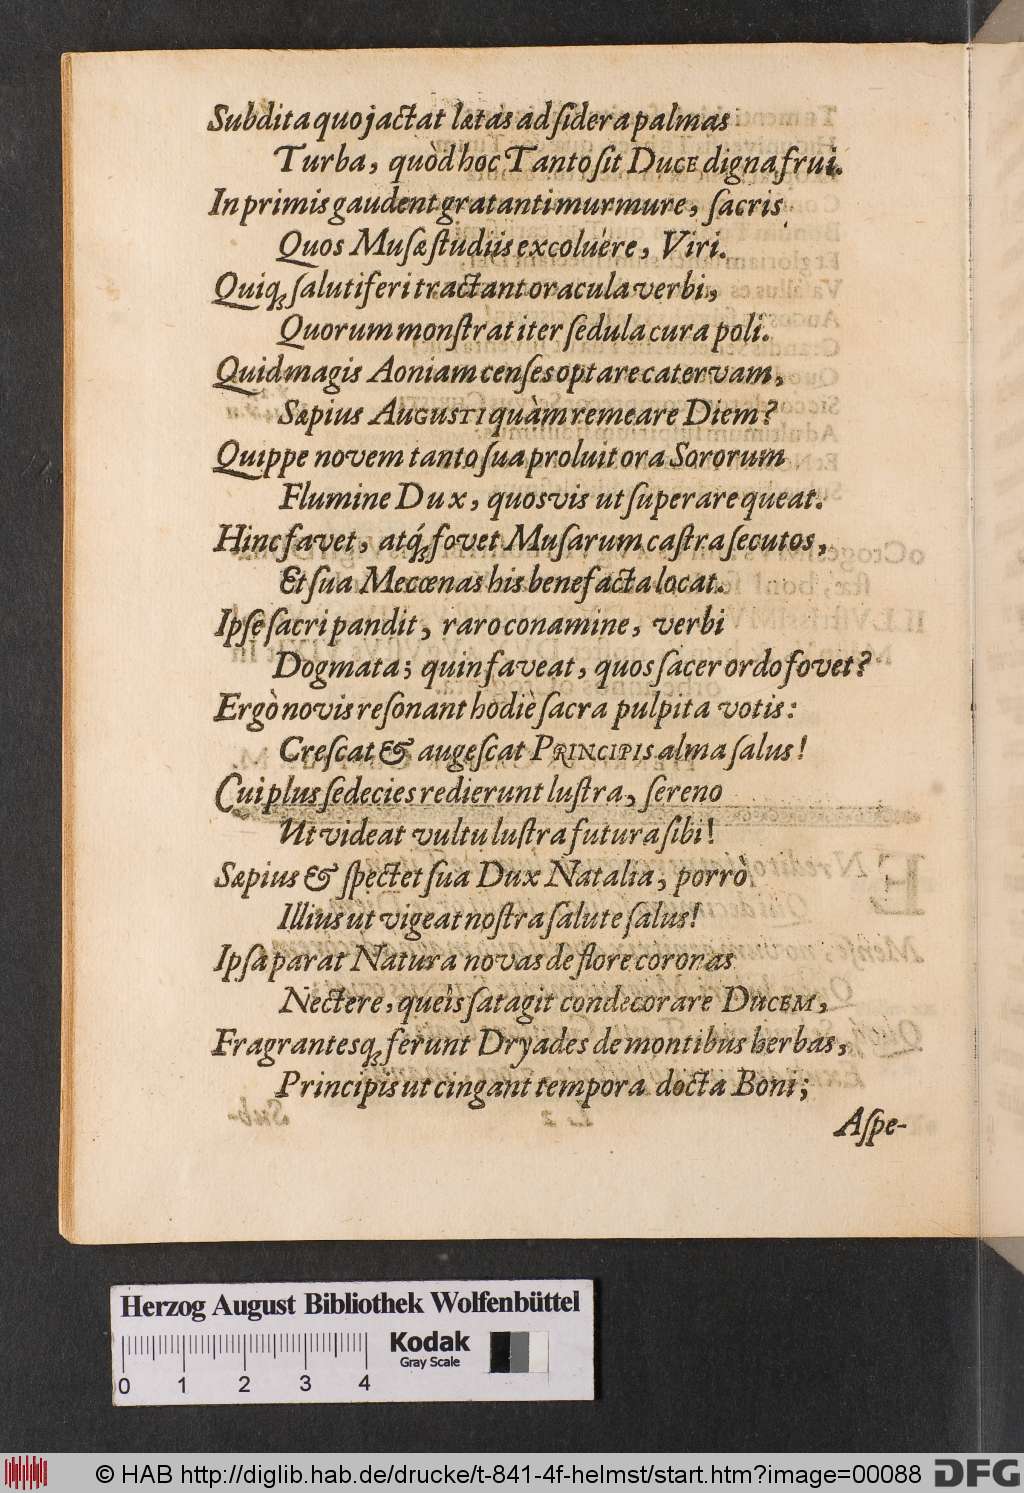 Subdita quo jactat lætas ad ſidera palmas
Turba, quòd hoc Tanto ſit DUCE digna frui.
Inprimis gaudent gratanti murmure, ſacris
Quos Muſæ ſtudiis excoluére, Viri.
Quiq́ꝫ ſalutiferi tractant oracula verbi,
Quorum monſtrat iter ſedula cura poli.
Quid magis Aoniam cenſes optare catervam,
Sæpius AUGUSTI quàm remeare Diem?
Quippe novem tanto ſua proluit ora Sororum
Flumine Dux, quosvis ut ſuperare queat.
Hinc favet, atq́ꝫ fovet Muſarum caſtra ſecutos,
Et ſua Mecœnas his benefacta locat.
Ipſe ſacri pandit, raro conamine, verbi
Dogmata; quin faveat, quos ſacer ordo fovet?
Ergò novis reſonant hodiè ſacra pulpita votis:
Creſcat & augeſcat PRINCIPIS alma ſalus!
Cui plus ſedecies redierunt luſtra, ſereno
Ut videat vultu luſtra futura ſibi!
Sæpius & ſpectet ſua Dux Natalia, porrò
Illius ut vigeat noſtra ſalute ſalus!
Ipſa parat Natura novas de flore coronas
Nectere, queîs ſatagit condecorare DUCEM,
Fragrantesq́ꝫ ferunt Dryades de montibus herbas,
Principis ut cingant tempora docta Boni;
Aſpe-
Herzog August Bibliothek Wolfenbüttel
Kodak
Gray Scale
0 1 2 3 4
© HAB http://diglib.hab.de/drucke/t-841-4f-helmst/start.htm?image=00088
DFG